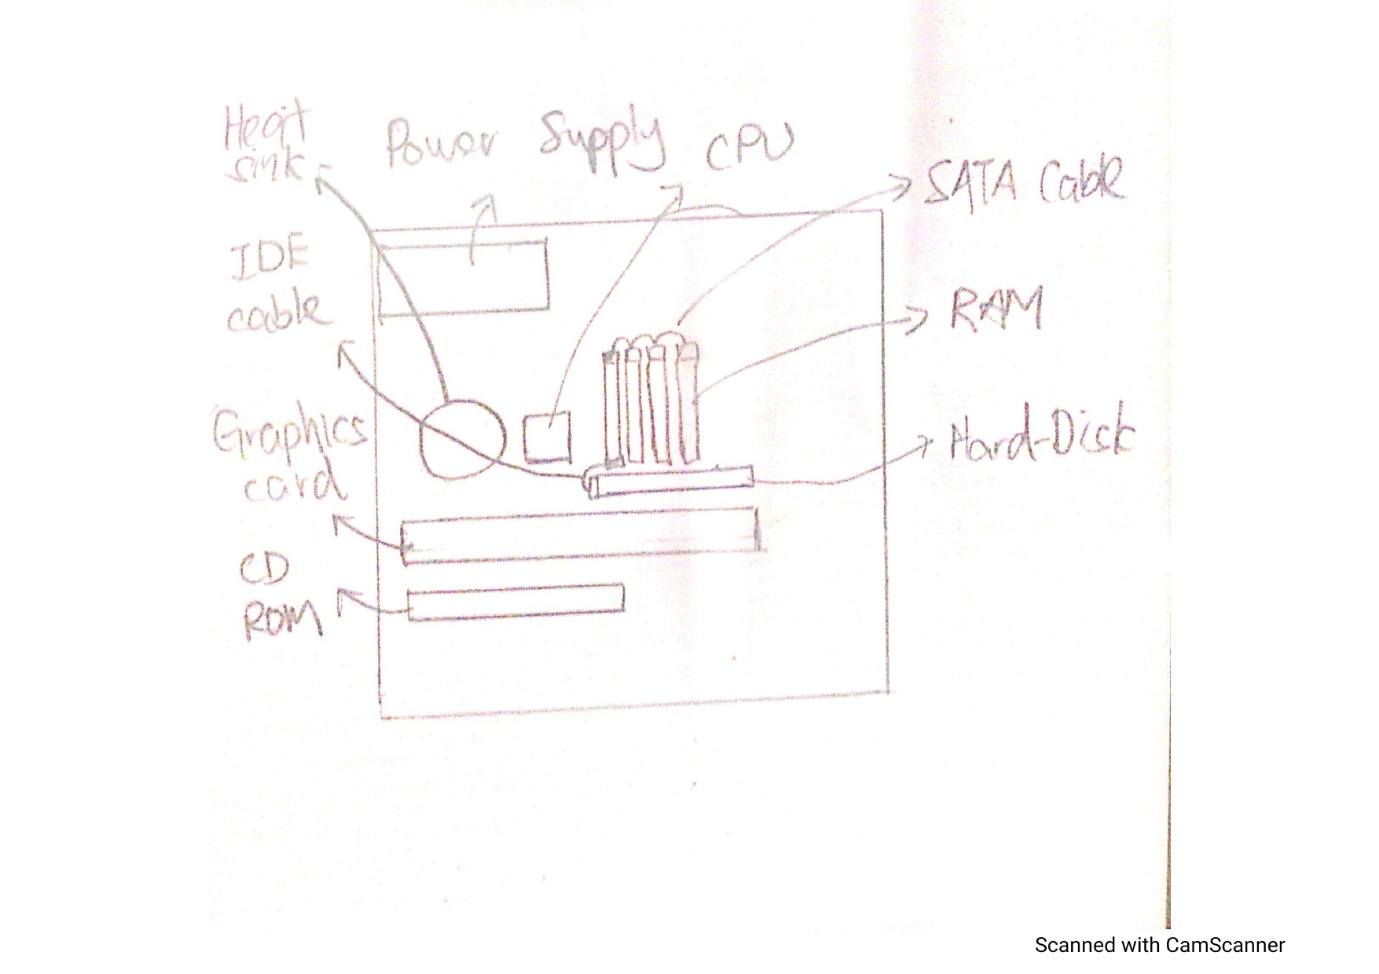 Heat
sink
Power Supply
CPU
SATA Cable
IDE
cable
RAM
Graphics
card
Hard-Disk
CD
ROM
Scanned with CamScanner